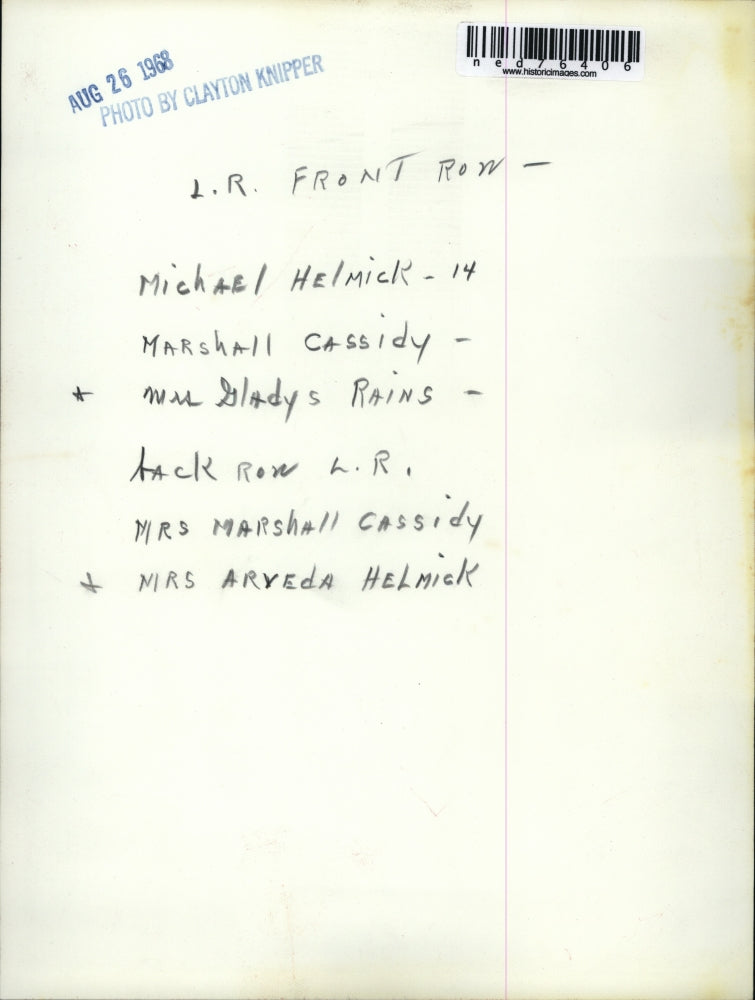 AUG 26 1968
PHOTO BY CLAYTON KNIPPER
ned76406
www.historicimages.com
L.R. FRONT ROW -
MichAEl HElMicK - 14
MARshAll CASSidy -
* Mrs GlAdys RAINS -
bAcK ROW L.R.
MRS MARshAll CASSidy
* MRS ARVEdA HELMicK